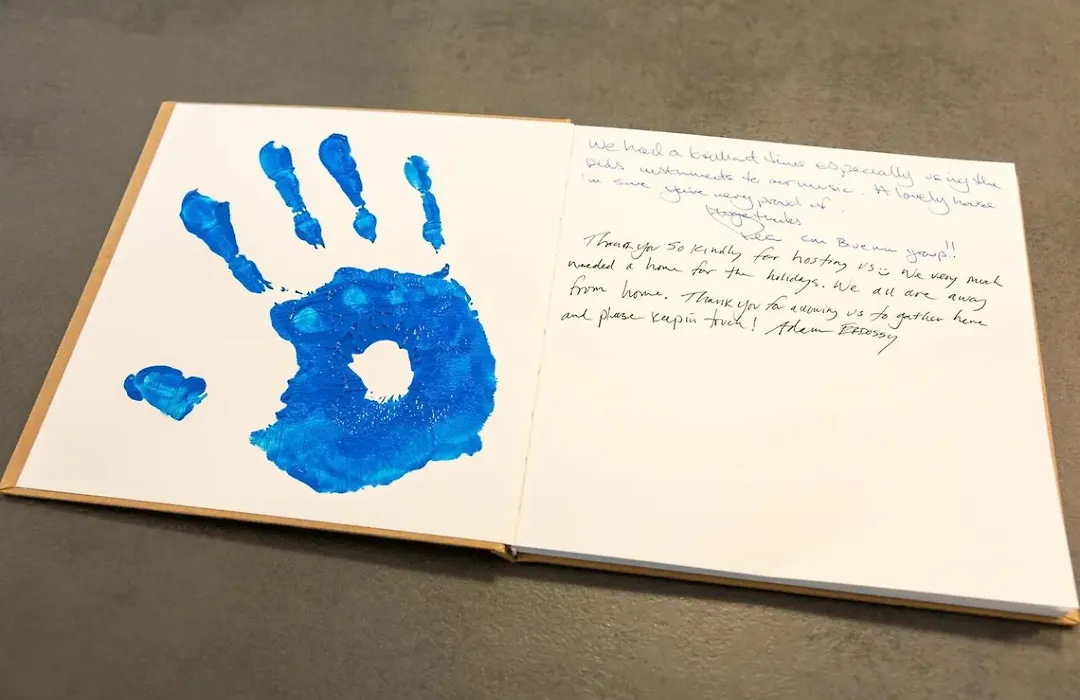 We had a brilliant time especially using the
kids instruments to our music. A lovely house
I'm sure you're very proud of.
Huge thanks
Blue man group!!
Thank you so kindly for hosting us We very much
needed a home for the holidays. We all are away
from home. Thank you for allowing us to gather here
and please keep in touch! Adam ERDOSSY